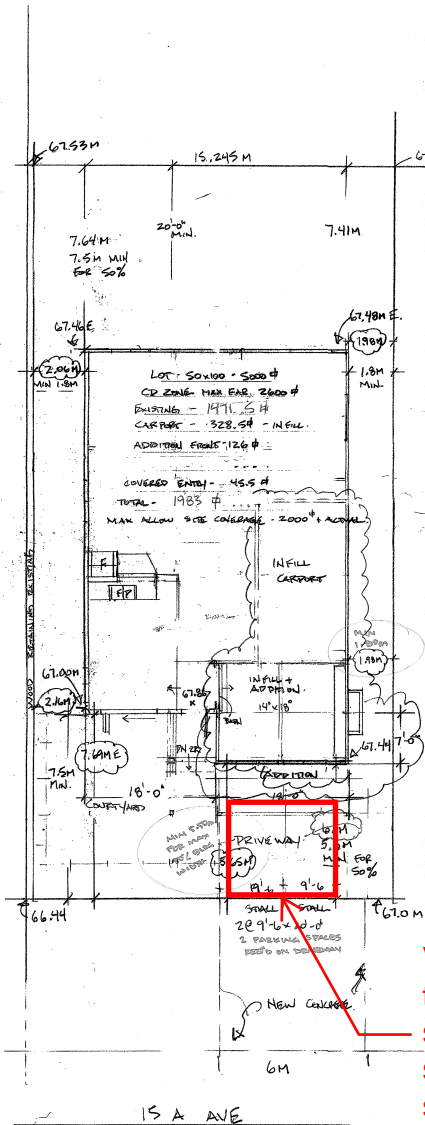 67.53M
15.245 M
7.64M
7.5M MIN
FOR 50%
20'-0"
MIN.
7.41M
67.46E
67.48M E.
1.98M
2.06M
MIN 1.8M
1.8M
MIN.
LOT - 50x100 - 5000 ⌀
CD ZONE MAX FAR. 2600 ⌀
EXISTING - 1491.5 ⌀
CARPORT - 328.5⌀ - INFILL.
ADDITION FRONT - 126 ⌀
COVERED ENTRY - 45.5 ⌀
TOTAL - 1983 ⌀
MAX ALLOW SITE COVERAGE - 2000⌀ + ACTUAL
INFILL
CARPORT
F
F/P
WOOD RETAINING EXISTING
MIN
1.98M
67.00M
2.16M
INFILL +
ADDITION.
14' x 18'
67.44
7'-0"
7.69M E
7.5M
MIN.
18'-0"
COURTYARD
ADDITION
18'-0"
DRIVEWAY
MIN
FOR MAX
WIDTH
5.65M
MIN FOR
50%
9'-6
STALL STALL
2@ 9'-6 x
2 PARKING SPACES
REQ'D ON DRIVEWAY
66.44
67.0 M
NEW CONCRETE
6M
15 A AVE